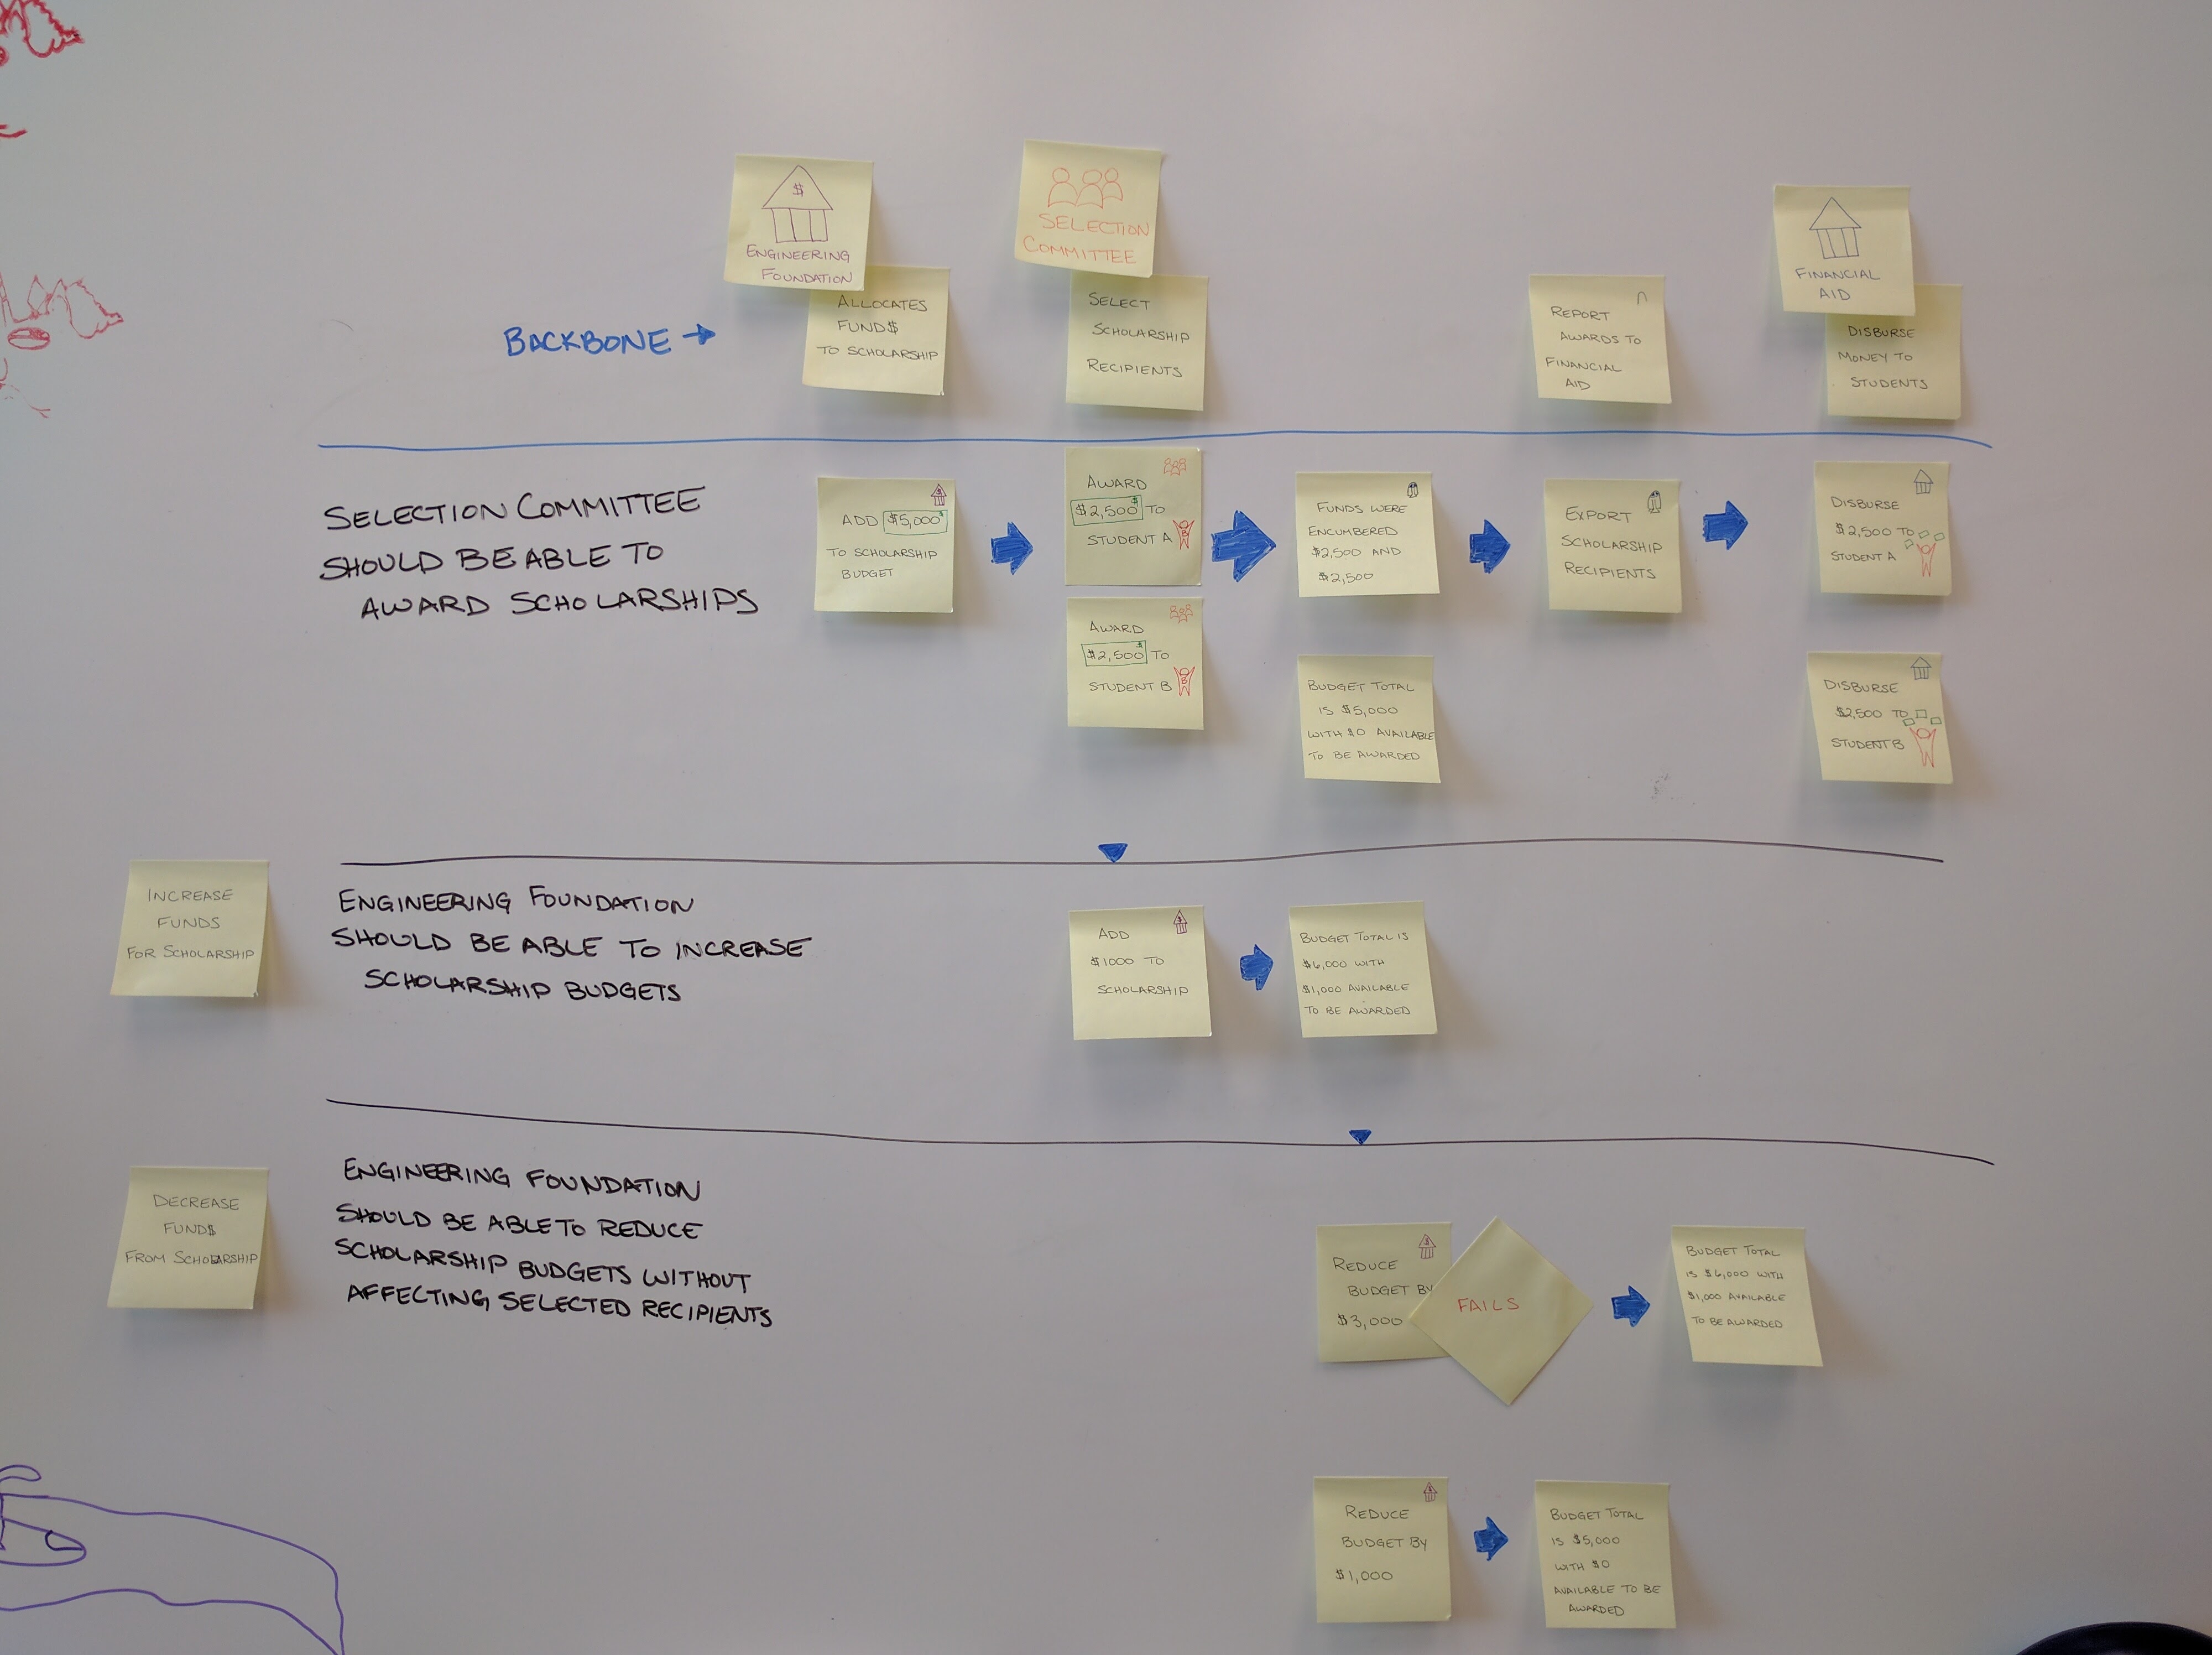 $
ENGINEERING
FOUNDATION
ALLOCATES
FUND$
TO SCHOLARSHIP
SELECTION
COMMITTEE
SELECT
SCHOLARSHIP
RECIPIENTS
REPORT
AWARDS TO
FINANCIAL
AID
FINANCIAL
AID
DISBURSE
MONEY TO
STUDENTS
BACKBONE →
SELECTION COMMITTEE
SHOULD BE ABLE TO
AWARD SCHOLARSHIPS
$
ADD $5,000 $
TO SCHOLARSHIP
BUDGET
AWARD
$2,500 $ TO
STUDENT A A
AWARD
$2,500 $ TO
STUDENT B B
FUNDS WERE
ENCUMBERED
$2,500 AND
$2,500
BUDGET TOTAL
IS $5,000
WITH $0 AVAILABLE
TO BE AWARDED
EXPORT
SCHOLARSHIP
RECIPIENTS
DISBURSE
$2,500 TO
STUDENT A
DISBURSE
$2,500 TO
STUDENT B
INCREASE
FUNDS
FOR SCHOLARSHIP
ENGINEERING FOUNDATION
SHOULD BE ABLE TO INCREASE
SCHOLARSHIP BUDGETS
$
ADD
$1000 TO
SCHOLARSHIP
BUDGET TOTAL IS
$6,000 WITH
$1,000 AVAILABLE
TO BE AWARDED
DECREASE
FUND$
FROM SCHOLARSHIP
ENGINEERING FOUNDATION
SHOULD BE ABLE TO REDUCE
SCHOLARSHIP BUDGETS WITHOUT
AFFECTING SELECTED RECIPIENTS
$
REDUCE
BUDGET BY
$3,000
FAILS
BUDGET TOTAL
IS $6,000 WITH
$1,000 AVAILABLE
TO BE AWARDED
$
REDUCE
BUDGET BY
$1,000
BUDGET TOTAL
IS $5,000
WITH $0
AVAILABLE TO BE
AWARDED